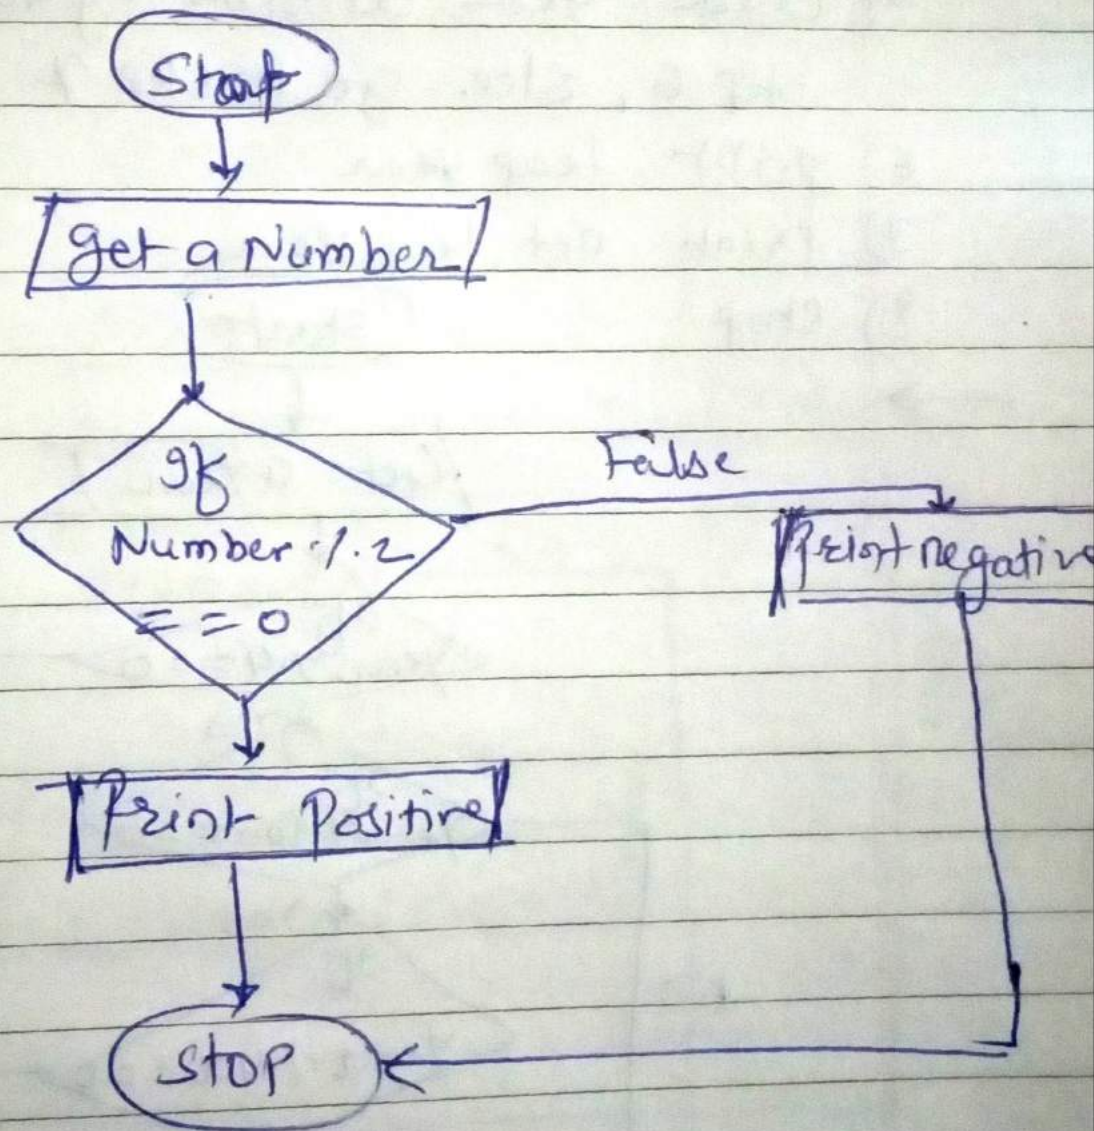 Start
get a Number
If
Number % 2
= = 0
False
Print negative
Print Positive
Stop